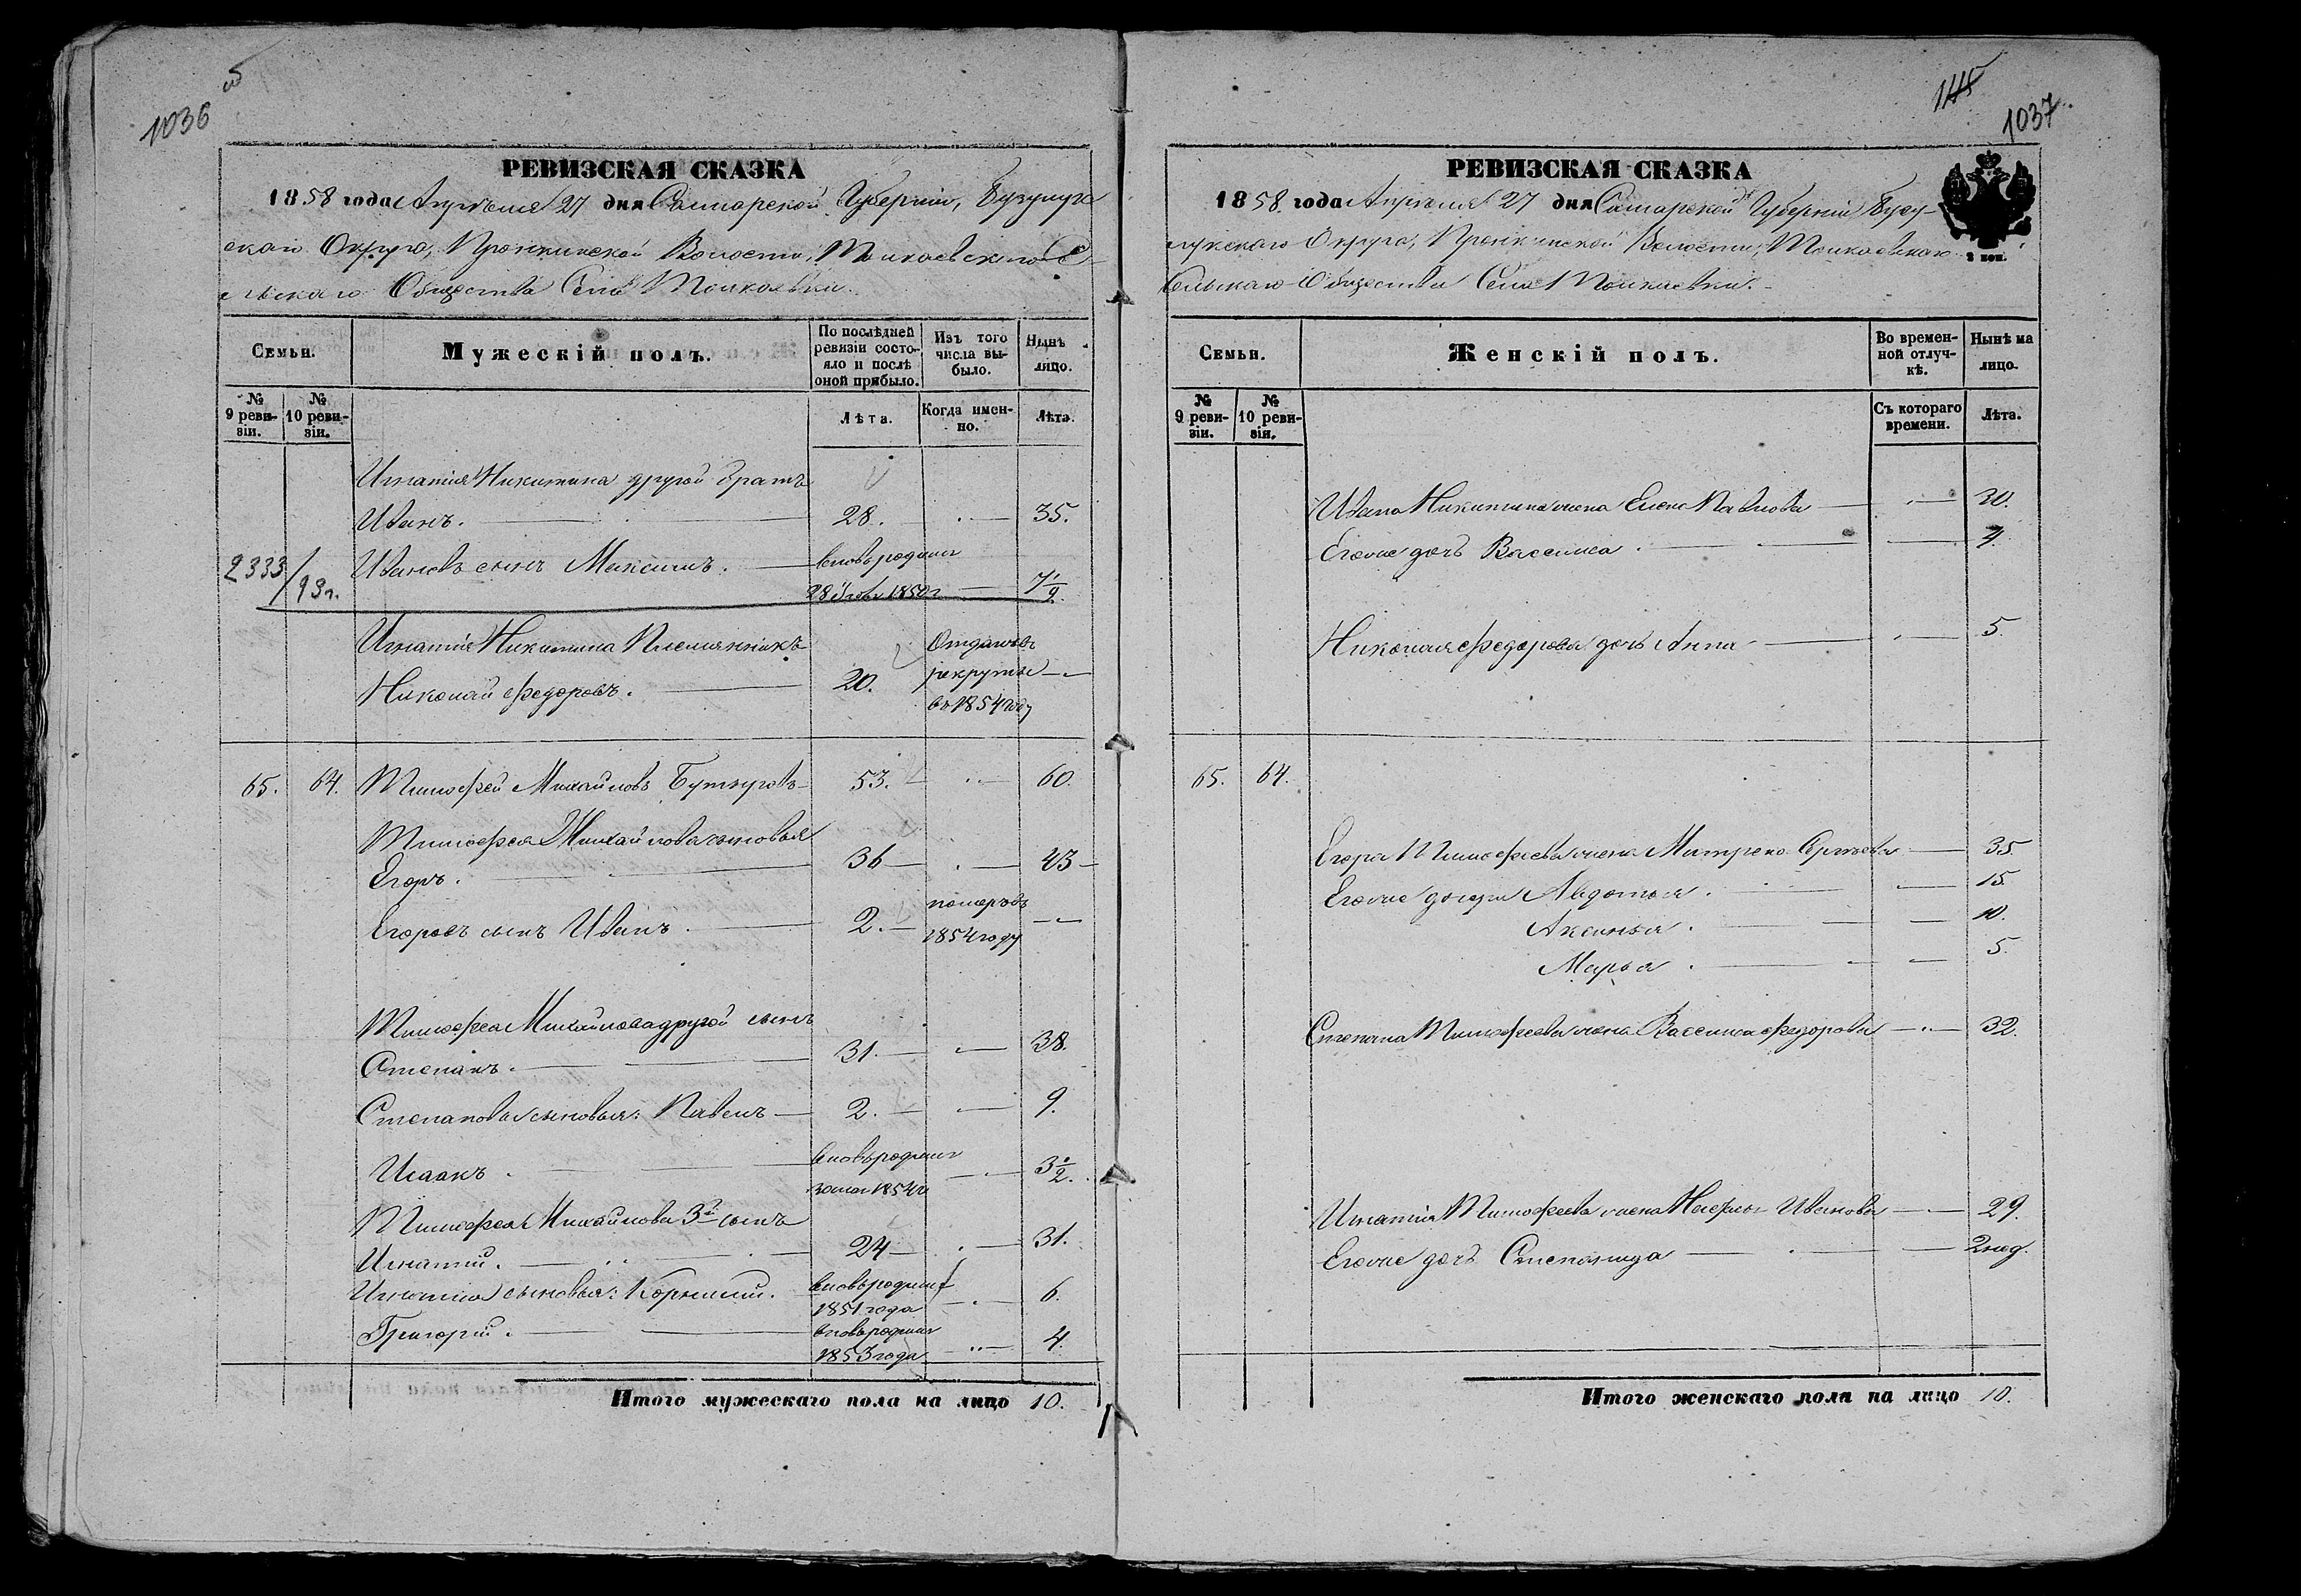 1036
115
1037
РЕВИЗСКАЯ СКАЗКА
1858 года Апреля 27 дня Самарской Губерніи, Бузулук
скаго Округа, Пронкинской Волости, Се
льскаго Общества Села
Семьи.
Мужескій полъ.
По послѣдней ревизіи состояло и послѣ оной прибыло.
Изъ того числа выбыло.
Нынѣ лицо.
№ 9 ревизіи.
№ 10 ревизіи.
Лѣта.
Когда именно.
Лѣта.
Игнатія Никитина другой братъ
Иванъ. 28. 35.
2333/93г. Ивановъ сынъ Максимъ. вновь родился
1850г 7½
Игнатія Никитина племянникъ
Николай Федоровъ. 20. Отданъ въ рекруты въ 1854 году
65. 64. Тимофей Михайловъ 53. 60.
Тимофея Михайлова сыновья
Егоръ. 36 43
Егоровъ сынъ Иванъ. 2. померъ въ 1854 году
Тимофея Михайлова другой сынъ
Степанъ. 31. 38.
Степановы сыновья: Павелъ 2. 9.
Исаакъ. вновь родился 1854г 3½.
Тимофея Михайлова 3й сынъ
Игнатій. 24 31.
Игнатія сыновья: Корнилий. вновь родился 1851 года 6.
Григорій. вновь родился 1853 года 4.
Итого мужескаго пола на лицо 10.
РЕВИЗСКАЯ СКАЗКА
1858 года Апреля 27 дня Самарской Губерніи Бузу-
лукскаго Округа, Пронкинской Волости,
Сельскаго Общества Села
2 коп.
Семьи.
Женскій полъ.
Во временной отлучкѣ.
Нынѣ на лицо.
№ 9 ревизіи.
№ 10 ревизіи.
Съ котораго времени.
Лѣта.
Ивана Никитина жена Елена Павлова 30.
Егоже дочь Васса 7.
Николая Федорова дочь Анна 5.
65. 64.
Егора Тимофеева жена Матрена Сергѣева 35.
Егоже дочери Авдотья. 15.
Аксинья. 10.
Марья. 5.
Степана Тимофеева жена Федорова 32.
Игнатія Тимофеева жена Иванова 29.
Егоже дочь Степанида 2 нед.
Итого женскаго пола на лицо 10.